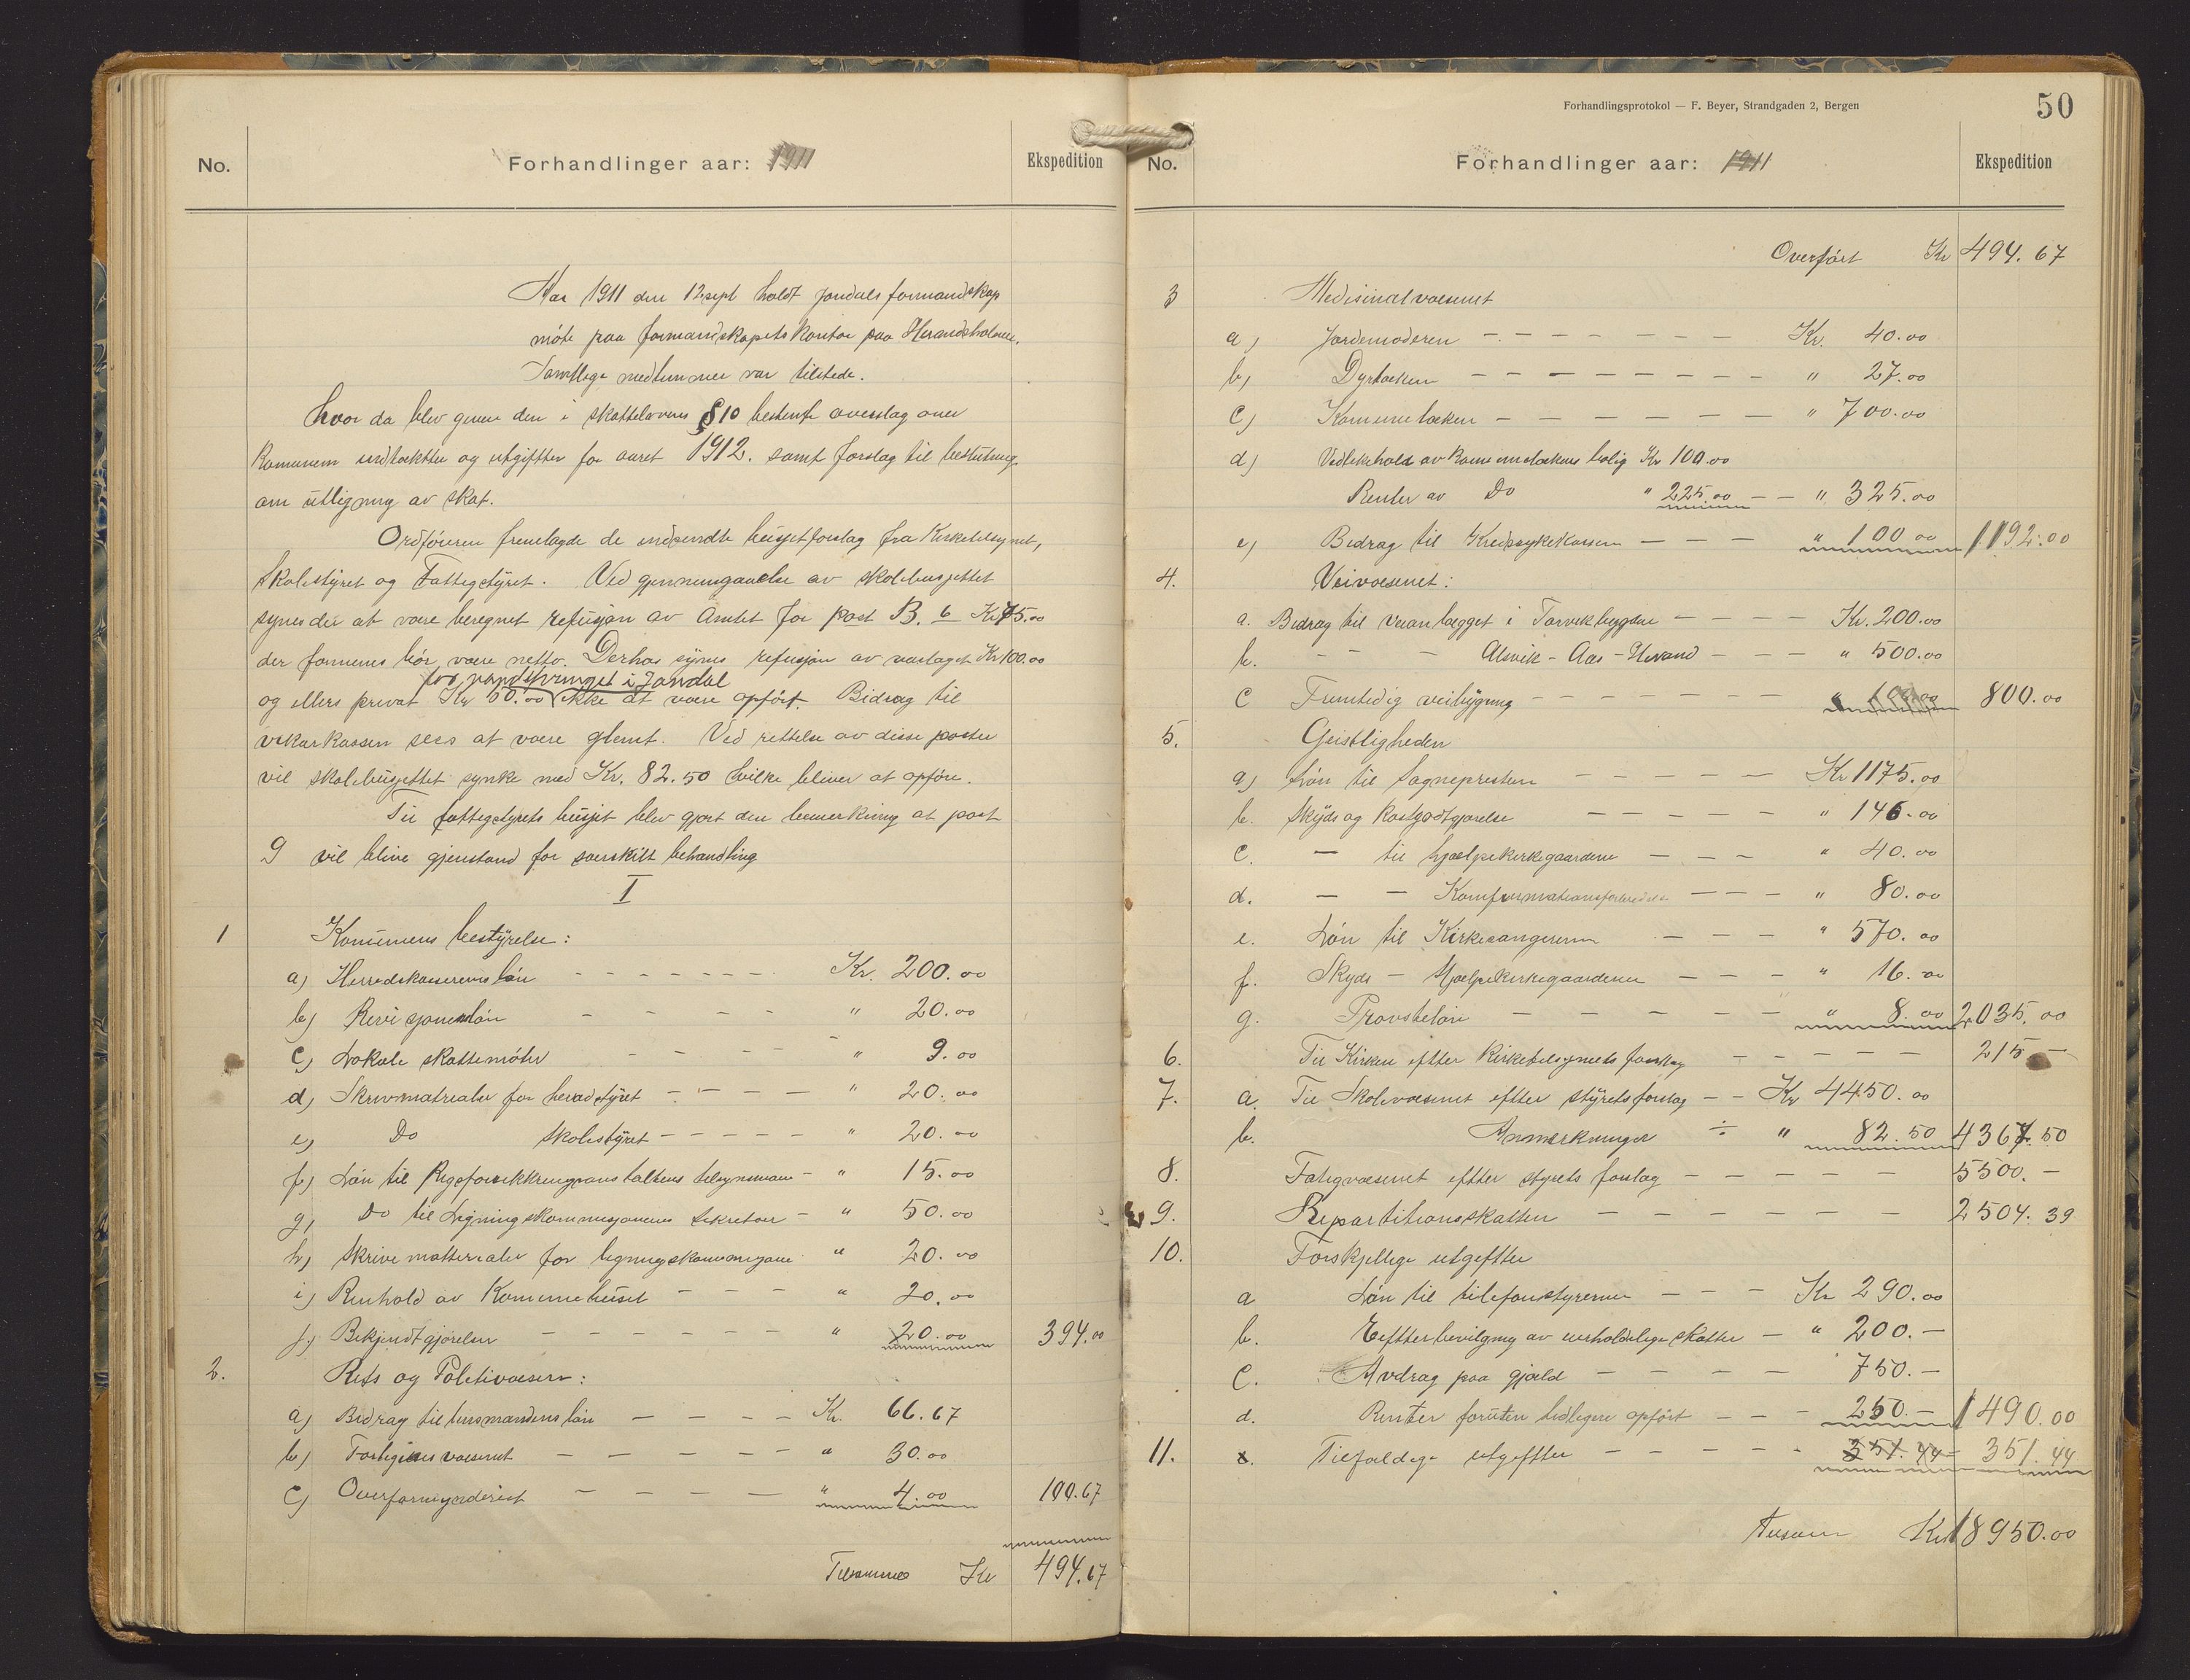 No.
Forhandlinger aar: 1911
Ekspedition
Aar 1911 den 12 sept holdt Jondals formandskap
møte paa formandskapets kontor paa Herandsholmen.
Samtlige medlemmer var tilstede.
Hvor da blev gjenn den i skattelovens §10 bestemte overslag over
Komunens indtækkter og utgiftter for aaret 1912. samt forslag til beslutning
om utligning av skat.
Ordføreren fremlagde de indsendte busjetforslag fra Kirketilsynet,
Skolestyret og Fattigstyret. Ved gjennemgaaelse av skolebusjettet
synes der at være beregnet refusjon av Amtet for post B. 6 Kr 75.00
der formenes bør være netto. Derhos synes refusjon av varlaget Kr 100.00
for vandspringet i Jondal
og ellers privat Kr 50.00 ikke at være opført. Bidrag til
vikarkassen sees at være glemt. Ved rettelse av disse poster
vil skolebusjettet synke med Kr. 82.50 hvilke bliver at opføre.
Til fattigstyrets busjet blev gjort den bemerkning at post
9 vil blive gjenstand for særskilt behandling
I
1 Komunens bestyrelse:
a) Herredskasserens løn Kr. 200.00
b) Revisjonensløn " 20.00
c) Lokale skattemøter " 9.00
d) Skrivmatrealer for heradstyret " 20.00
e) Do skolestyret " 20.00
f) Løn til Rigsforsikkringsanstaltens tilsynsman " 15.00
g) Do til Ligningskommisjonens Sekretær " 50.00
h) Skrivematterialer for ligningskommisjone " 20.00
i) Renhold av Komunehuset " 20.00
j) Bekjendtgjørelser " 20.00 394.00
2. Rets og Politivæsen:
a) Bidrag til lensmandens løn Kr. 66.67
b) Forligelsesvæsenet " 30.00
c) Overformynderiet " 4.00 100.67
Tilsammen Kr 494.67
Forhandlingsprotokol — F. Beyer, Strandgaden 2, Bergen
50
No.
Forhandlinger aar: 1911
Ekspedition
Overført Kr 494.67
3 Medisinalvæsenet
a) Jordemoderen Kr. 40.00
b) Dyrlæken " 27.00
c) Komunelæken " 700.00
d) Vedlikehold av Komunelækens bolig Kr 100.00
Renter av Do " 225.00 " 325.00
e) Bidrag til Kredssykekassen " 100 00 1192.00
4. Veivæsenet:
a. Bidrag til veianlægget i Torvikbygden Kr. 200.00
b. - - - Alsvik - Aas - Herand " 500.00
c Fremtidig veibygning " 100.00 800.00
5. Geistligheden
a) Løn til Sognepresten Kr 1175.00
b. Skyds og Kostgodtgjørelse " 146.00
c. — til hjælpekirkegaardene " 40.00
d. — — Komfirmationsforberedelse " 80.00
e. Løn til Kirkesangeren " 570.00
f. Skyds — Hjælpekirkegaardene " 16.00
g. Provsteløn " 8.00 2035.00
6. Til Kirken efter Kirketilsynets forslag 215 —
7. a. Til Skolevæsenet efter styrets forslag Kr 4450.00
b. Anmerkninger ÷ " 82.50 4367.50
8. Fatigvæsenet eftter styrets forslag 5500.-
9. Repartitionsskatten 2504.39
10. Forskjellige utgiftter
a Løn til tilefonstyrerne Kr 290.00
b. Eftterbevilgning av uerholdelige skatter " 200.-
c. Avdrag paa gjæld 750.-
d. Renter foruten tidligere opført 250.- 1490.00
11. Tilfældige utgiftter 351.44 351.44
Tilsam Kr 18950.00